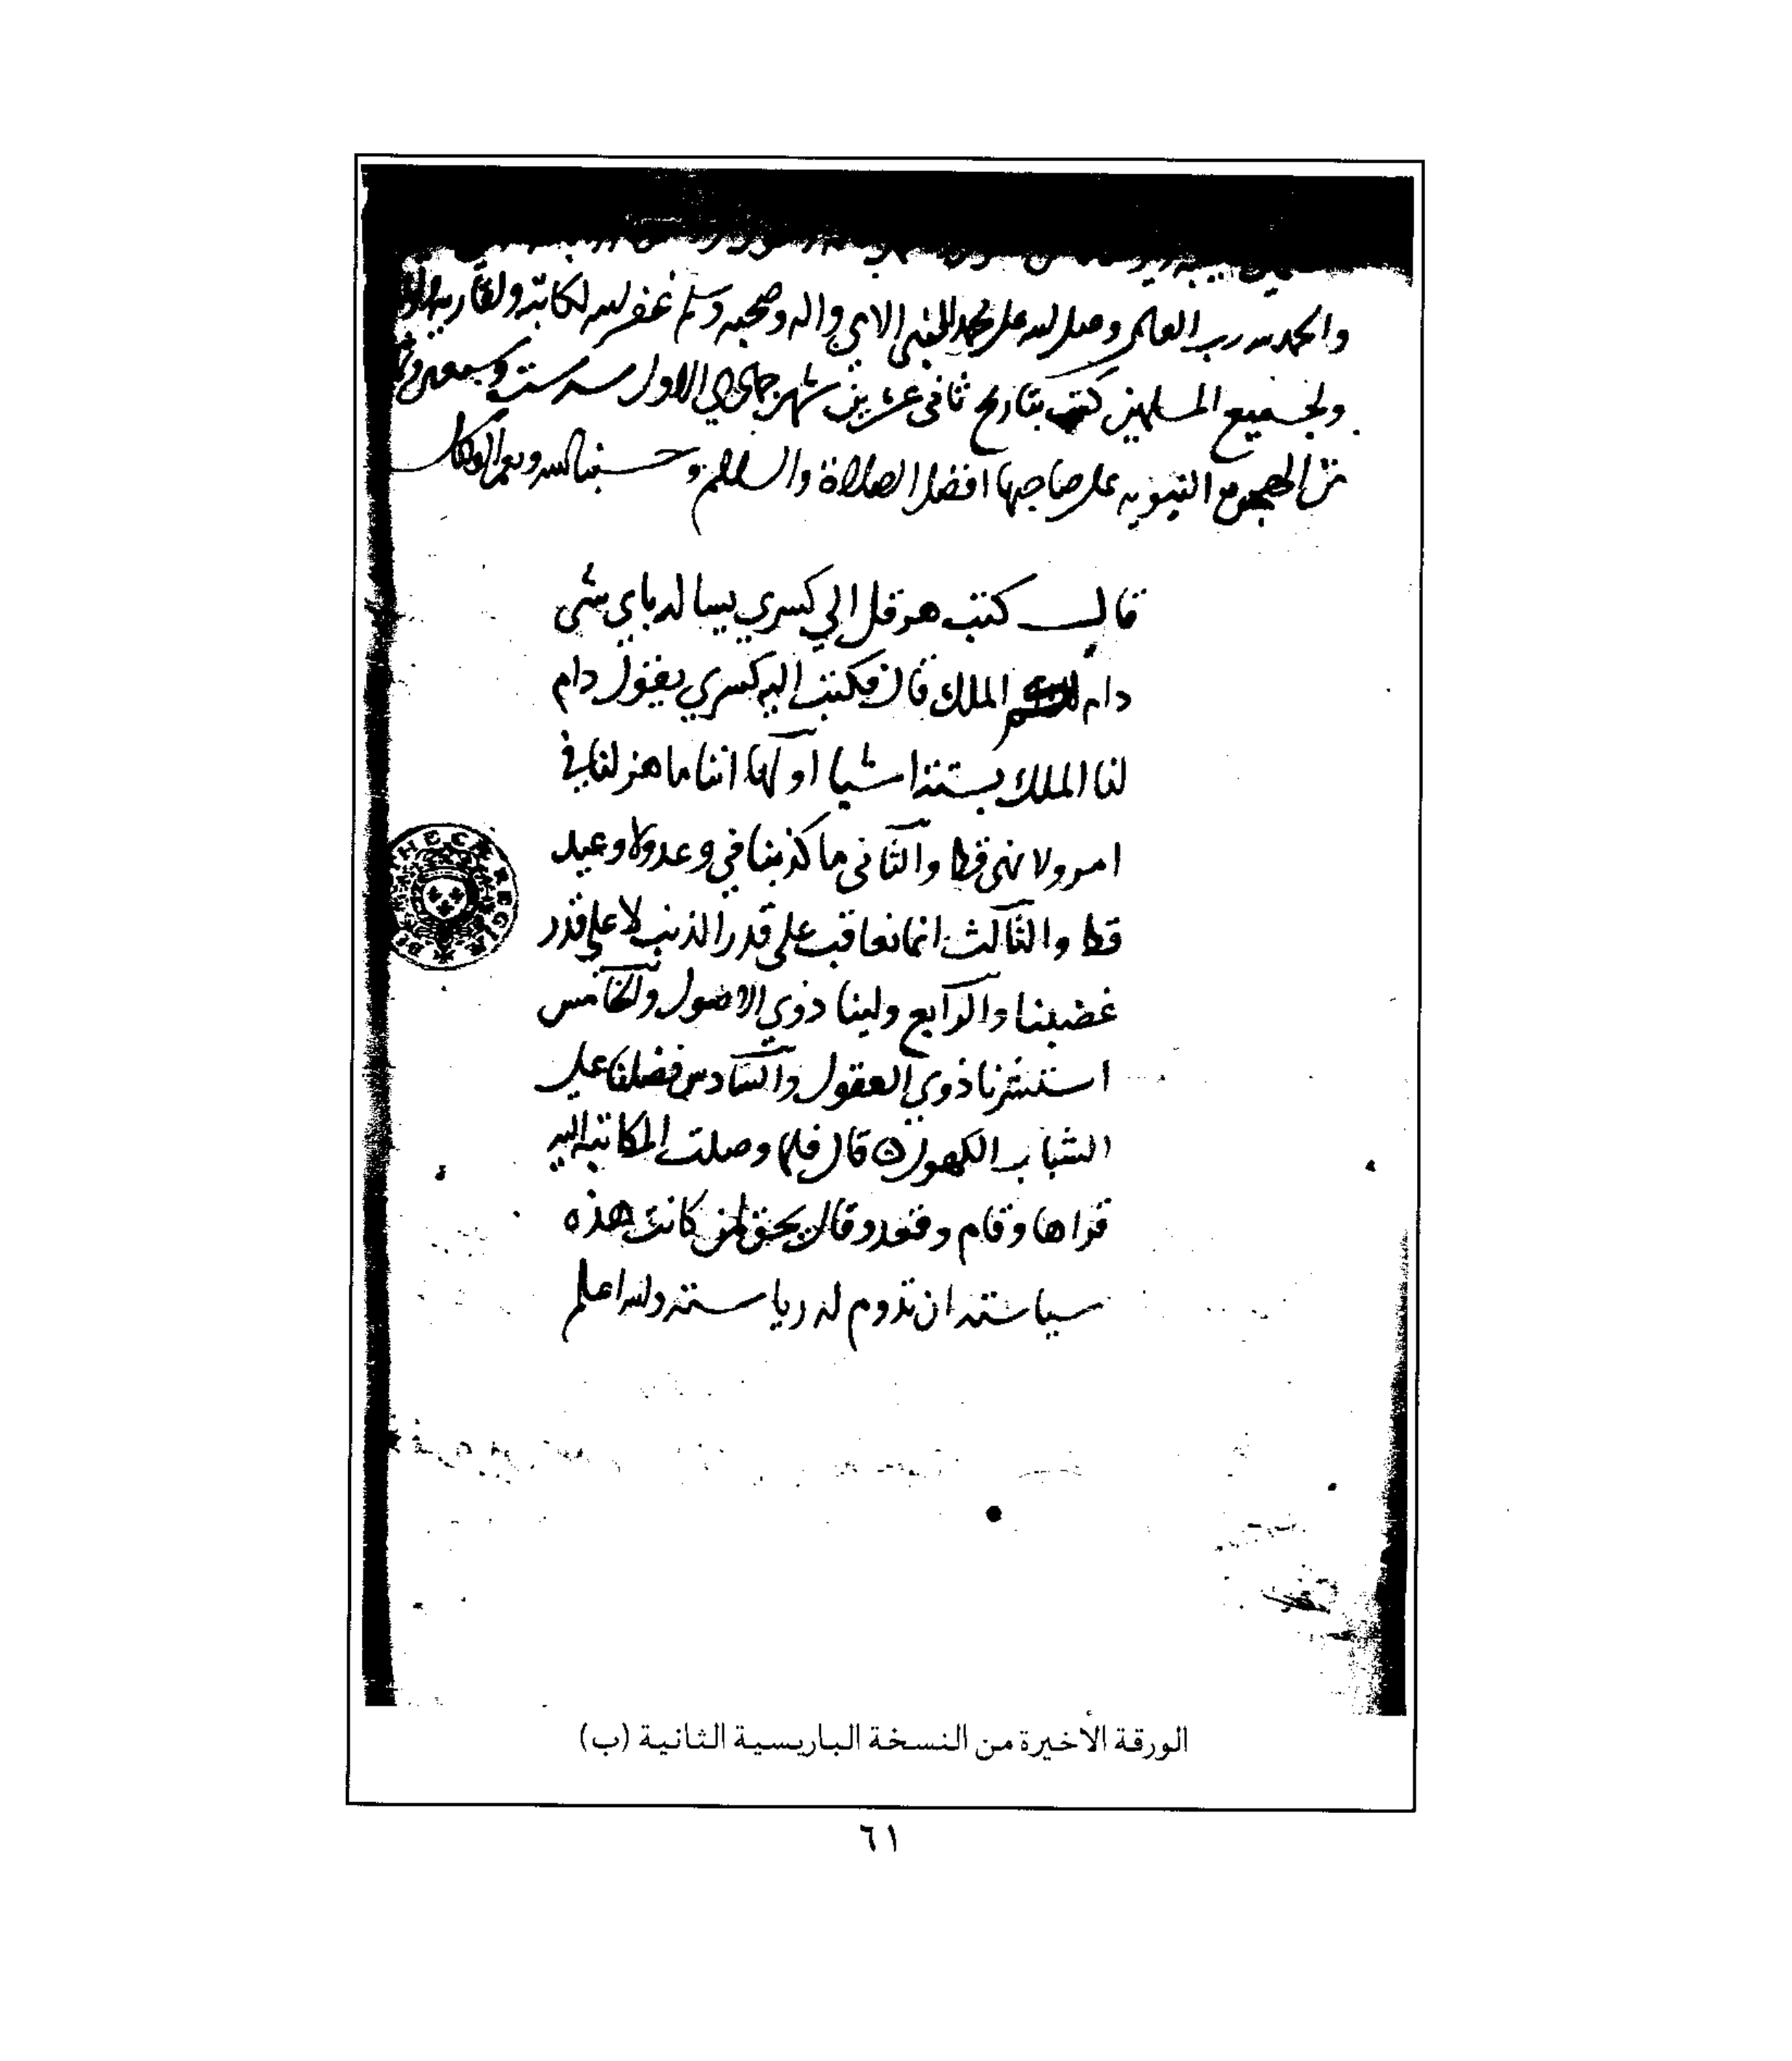 والحمد لله رب العالمين وصلى الله على محمد النبي الامي واله وصحبه وسلم غفر الله لكاتبه ولقاريه
ولجميع المسلمين كتب بتاريخ ثاني عشرين شهر جمادي الاول سنه ست وسبعين
من الهجره النبويه على صاحبها افضل الصلاة والسلام وحسبنا الله ونعم الوكيل
قال كتب هرقل الي كسري يساله باي شي
دام الملك قال فكتب اليه كسري يقول دام
لنا الملك بستة اشيا اولها اننا ما هزلنا في
امر ولا نهي قط والثاني ما كذبنا في وعد ولا وعيد
قط والثالث انما نعاقب على قدر الذنب لا على قدر
غضبنا والرابع ولينا ذوي الاصول والخامس
استشرنا ذوي العقول والسادس فضلنا على
الشباب الكهول ۞ قال فلما وصلت المكاتبه اليه
قراها وقام وقعد وقال يحق لمن كانت هذه
سياسته ان تدوم له رياسته والله اعلم
الورقة الأخيرة من النسخة الباريسية الثانية (ب)
٦١